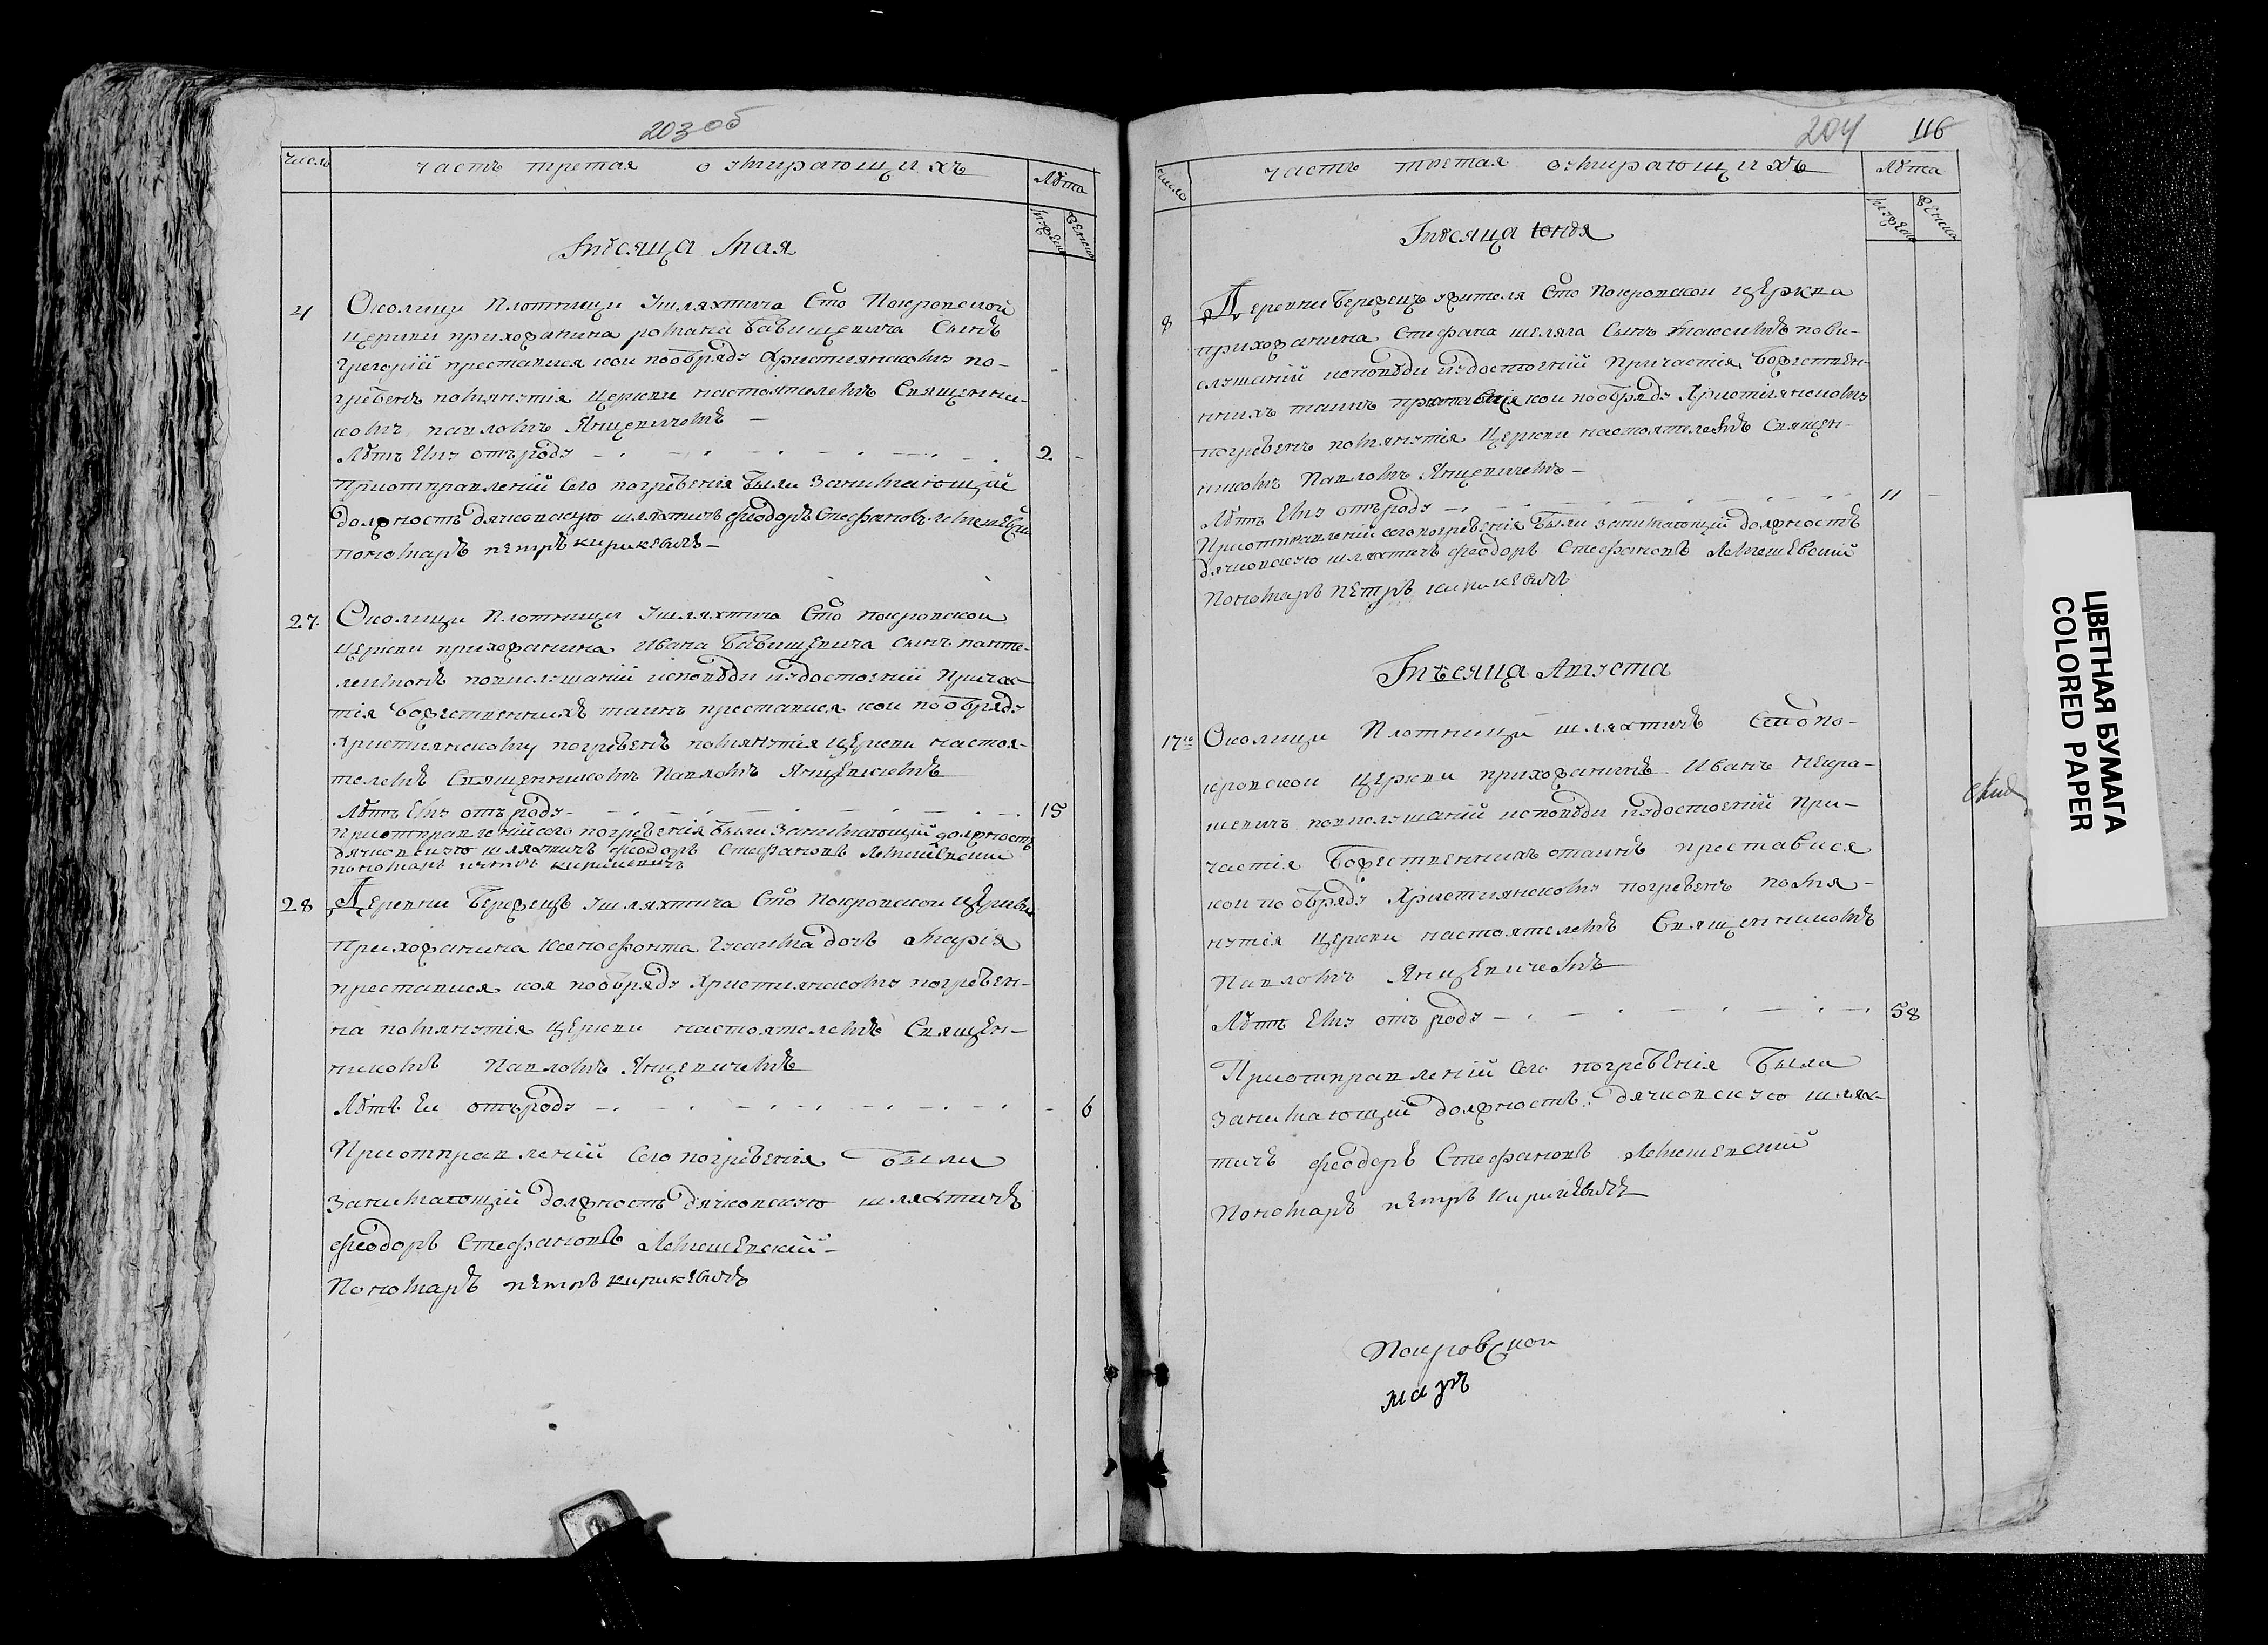 203об
число
часть третая о умирающихъ
Лѣта
мужеск
женск
Мѣсяца Мая
4
Околицы Плотницы Ушляхтича Сто Покровской
Церкви прихожанина романа Бабищевича Сынъ
Григорій преставися кои пообряду Християнскому по-
гребенъ помянутія Церкви настоятелемъ Священни-
комъ павломъ Янцевичомъ —
Лѣтъ Ему отъроду
2
Приотправленій сего погребенія были Занимающій
должность дячковскую шляхтичъ феодоръ Стефановъ Лемешевскій
пономаръ петръ кирикевичъ —
27.
Околицы Плотницы Ушляхтича Сто покровской
Церкви прихожанина Ивана Бабищевича Сынъ панте-
леимонъ повислушаній исповѣди иудостоеній Причас
тія божественнихъ таинъ преставися кои пообряду
Християнскому погребенъ помянутія Церкви настоя-
телемъ Священникомъ Павломъ Янцевичемъ
Лѣтъ Ему отъроду
15
Приотправленій сего погребенія были Занимающій должность
дячковскую шляхтичъ феодоръ Стефановъ Лемешевский
пономаръ петръ кирикевичъ
28
Деревни Бережцъ Ушляхтича Сто Покровской Церкви
Прихожанина Ксенофонта Гусаима дочъ Марія
преставися коя пообряду Християнскому погребен-
на помянутія Церкви настоятелемъ Священ-
никомъ Павломъ Янцевичемъ
Лѣтъ Еи отъроду
6
Приотправленій Сего погребенія были
Занимающій должность дячковскую шляхтичъ
феодоръ Стефановъ Лемешевский —
Пономаръ петръ кирикевичъ
204 116
число
часть третая оумирающихъ
Лѣта
мужеск
женск
Мѣсяца Іюня
8
Деревни Бережцъ жителя Сто Покровской Церкви
прихожанина Стефана шеляга Сынъ Максимъ пови-
слушаній исповѣди иудостоеній Причастія Божествен-
нихъ таинъ преставися кои пообряду Християнскому
погребенъ помянутія Церкви настоятелемъ Священ-
никомъ Павломъ Янцевичемъ —
Лѣтъ Ему отъроду
11
Приотправленій сего погребенія были занимающій должность
дячковскую шляхтичъ феодоръ Стефановъ Лемешевский
Пономаръ Петръ кирикевичъ
Мѣсяца Августа
17го
Околицы Плотницы шляхтичъ Сто по-
кровской Церкви прихожанинъ Иванъ Некра-
шевичъ повислушаній исповѣди иудостоеній При-
частія Божественнихъ таинъ преставися
кои по обряду Християнскому погребенъ помя-
нутія Церкви настоятелемъ Священникомъ
Павломъ Янцевичемъ
Лѣтъ Ему отъ роду
58
Приотправленій Сего погребенія были
Занимающій должность дячковскую шлях-
тичъ феодоръ Стефановъ Лемешевский
Пономаръ петръ Кирикевичъ
Покровской
ЦВЕТНАЯ БУМАГА
COLORED PAPER